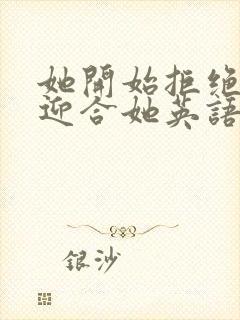 她開始拒绝
迎合她英語
銀沙